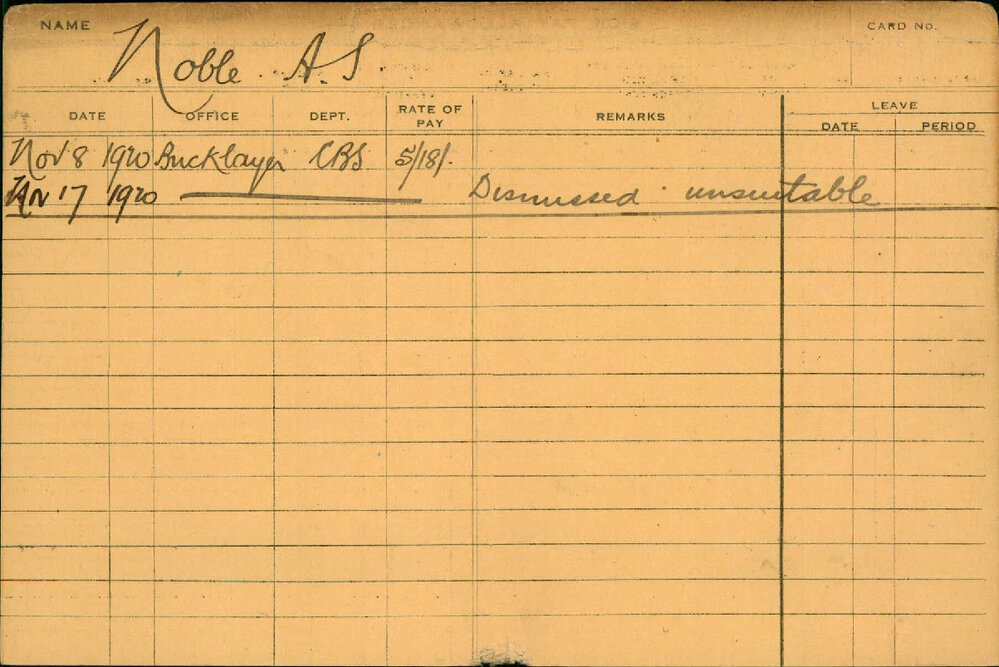 NAME Noble. A.S CARD No.
DATE OFFICE DEPT. RATE OF PAY REMARKS LEAVE
DATE PERIOD
Nov 8 1920 Bricklayer CBS 5/18/-
Nov 17 1920 Dismissed unsuitable